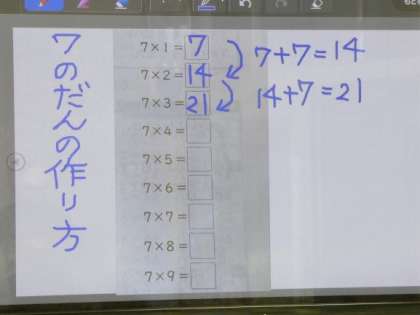 7のだんの作り方
7×1=7
7×2=14
7×3=21
7×4=
7×5=
7×6=
7×7=
7×8=
7×9=
7+7=14
14+7=21